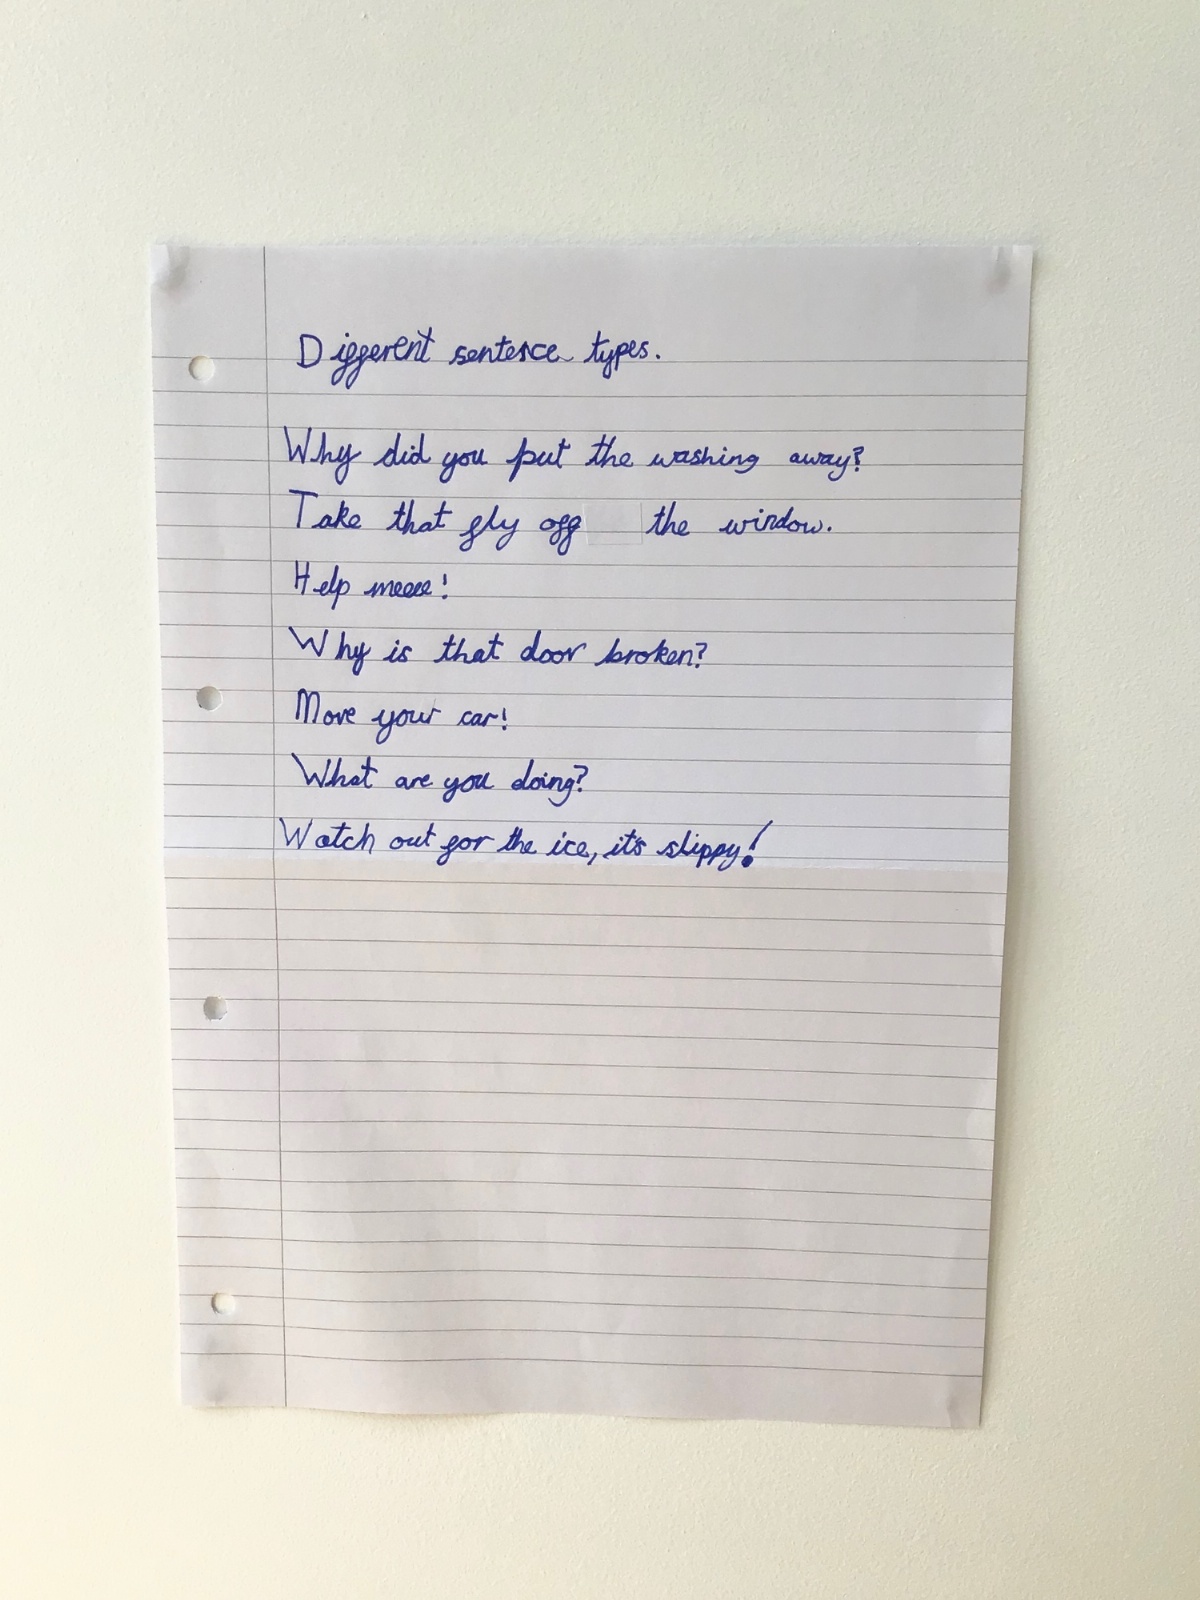 Different sentence types.
Why did you put the washing away?
Take that fly off the window.
Help meeee!
Why is that door broken?
Move your car!
What are you doing?
Watch out for the ice, it's slippy!